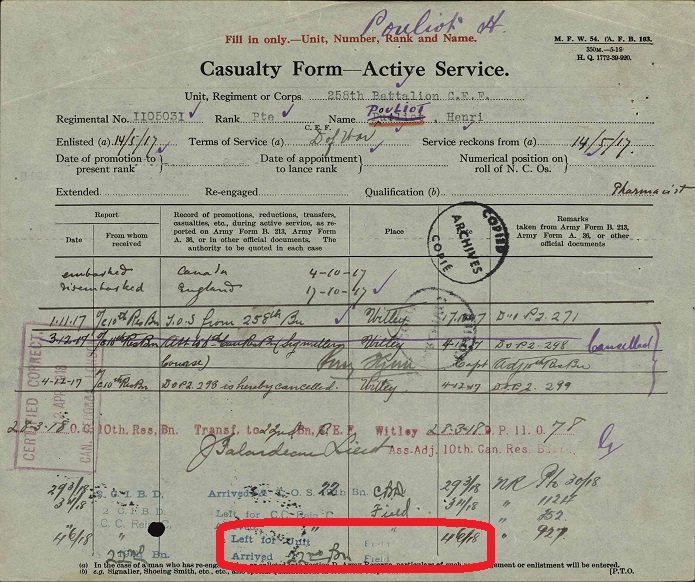 Pouliot H.
Fill in only.—Unit, Number, Rank and Name.
M. F. W. 54. (A. F. B. 103.
350M.—5-18
H. Q. 1772-39-920.
Casualty Form—Active Service.
Unit, Regiment or Corps 258th Battalion C.E.F.
Regimental No. 1105031 Rank Pte Name POULIOT, Henri
C. E. F.
Enlisted (a) 14/5/17 Terms of Service (a) D of War Service reckons from (a) 14/5/17
Date of promotion to present rank Date of appointment to lance rank Numerical position on roll of N. C. Os.
Extended Re-engaged Qualification (b) Pharmacist
Report
Date From whom received
Record of promotions, reductions, transfers, casualties, etc., during active service, as reported on Army Form B. 213, Army Form A. 36, or in other official documents. The authority to be quoted in each case
Place
Remarks taken from Army Form B. 213, Army Form A. 36, or other official documents
COPIED
ARCHIVES
COPIÉ
embarked Canada 4-10-17
disembarked England 17-10-17
1.11.17 10th Res Bn T.O.S from 258th Bn Witley D.O P2. 271
3-12-17 10th Res Bn (Signalling Witley 4-12-17 D.O P2-298 Cancelled
Course) Capt Adj 10th Res Bn
4-12-17 10th Res Bn D O P2. 298 is hereby cancelled. Witley 4-12-17 D.O P2. 299
CERTIFIED CORRECT
28-3-18 O.C. 10th. Res. Bn. Transf. to 22nd Bn. C.E.F. Witley 28-3-18 D.P.11.O. 78
Lieut
Ass-Adj. 10th. Can. Res. Battn.
29/3/18 C.G.I.B.D. Arrived & T.O.S. 22 Bn CBD 29/3/18 NR P2 30/18
3/4/18 Left for C.C. Rein. C. Field 3/4/18
C.C. Rein. C.
4/6/18 Left for Unit 4/6/18 " 927
22nd Bn. Arrived 22nd Bn Field
(a) In the case of a man who has re-engaged
(b) e.g. Signaller, Shoeing Smith, etc.
[P.T.O.